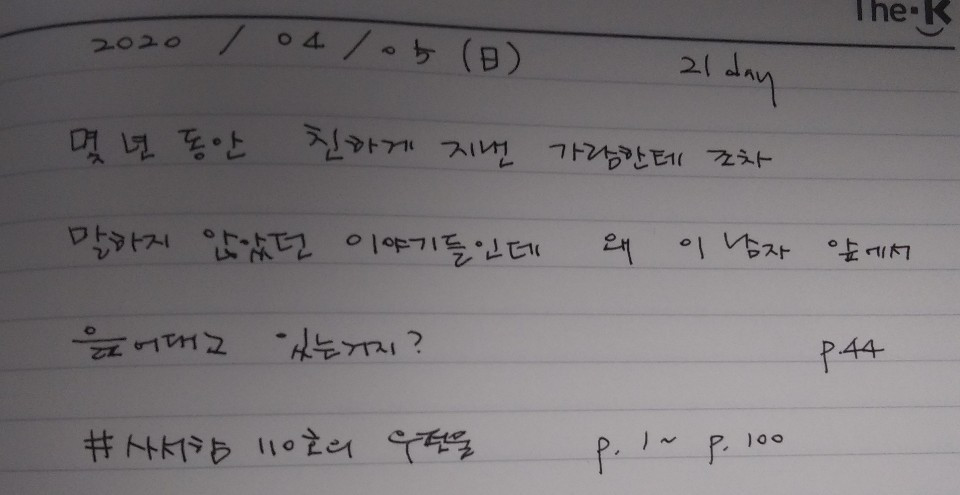 The·K
2020 / 04 / 05 (日) 21 day
몇 년 동안 친하게 지낸 가람한테 조차
말하지 않았던 이야기들인데 왜 이 남자 앞에서
읊어대고 있는거지? p.44
#사서함 110호의 우편물 p. 1 ~ p. 100